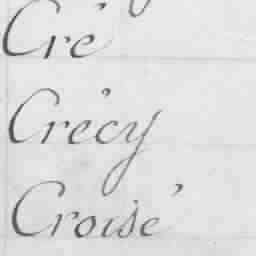 Cré
Crécy
Croisé